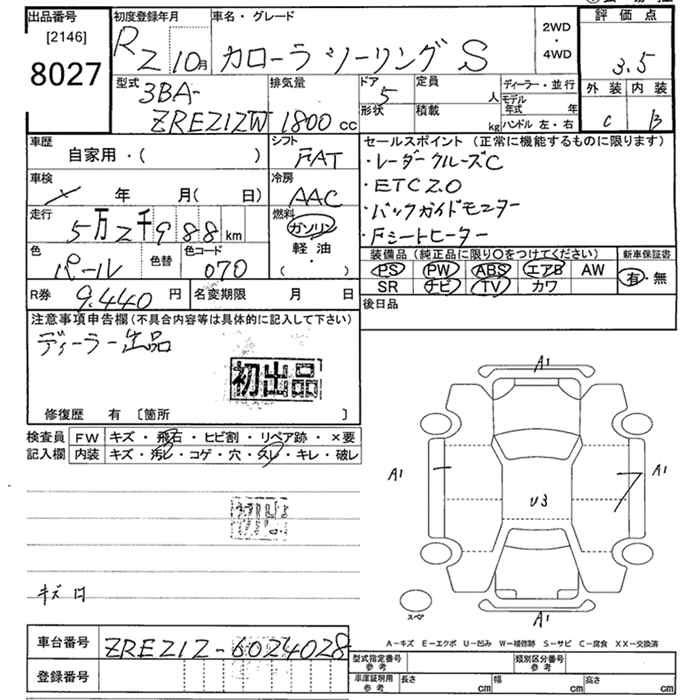 出品番号 [2146] 8027
初度登録年月 R2 10月
車名・グレード カローラツーリング S
2WD・4WD
評価点 3.5
外装 C 内装 B
型式 3BA-ZRE212W
排気量 1800cc
ドア 5
形状
定員 人
積載 kg
ディーラー・並行
モデル年式 年
ハンドル 左・右
車歴 自家用・( )
シフト FAT
車検 年 月(日)
冷房 AAC
走行 5万2千988km
燃料 ガソリン 軽油 ・( )
色 パール 色替 色コード 070
R券 9.440円 名変期限 月 日
セールスポイント(正常に機能するものに限ります)
・レーダークルーズC
・ETC2.0
・バックガイドモニター
・Fシートヒーター
装備品(純正品に限り○をつけてください)
PS PW ABS エアB AW
SR ナビ TV カワ
新車保証書 有・無
後日品
注意事項申告欄(不具合内容等は具体的に記入して下さい)
ディーラー出品
初出品
修復歴 有 [箇所 ]
検査員記入欄
FW キズ・飛石・ヒビ割・リペア跡・×要
内装 キズ・汚レ・コゲ・穴・スレ・キレ・破レ
初出
キズ
A1
A1
A1
U3
スペア
A1
A-キズ E-エクボ U-凹み W-補修跡 S-サビ C-腐食 XX-交換済
車台番号 ZRE212-6024028
登録番号
型式指定番号参考 類別区分番号参考
車庫証明用参考 長さ cm 幅 cm 高さ cm